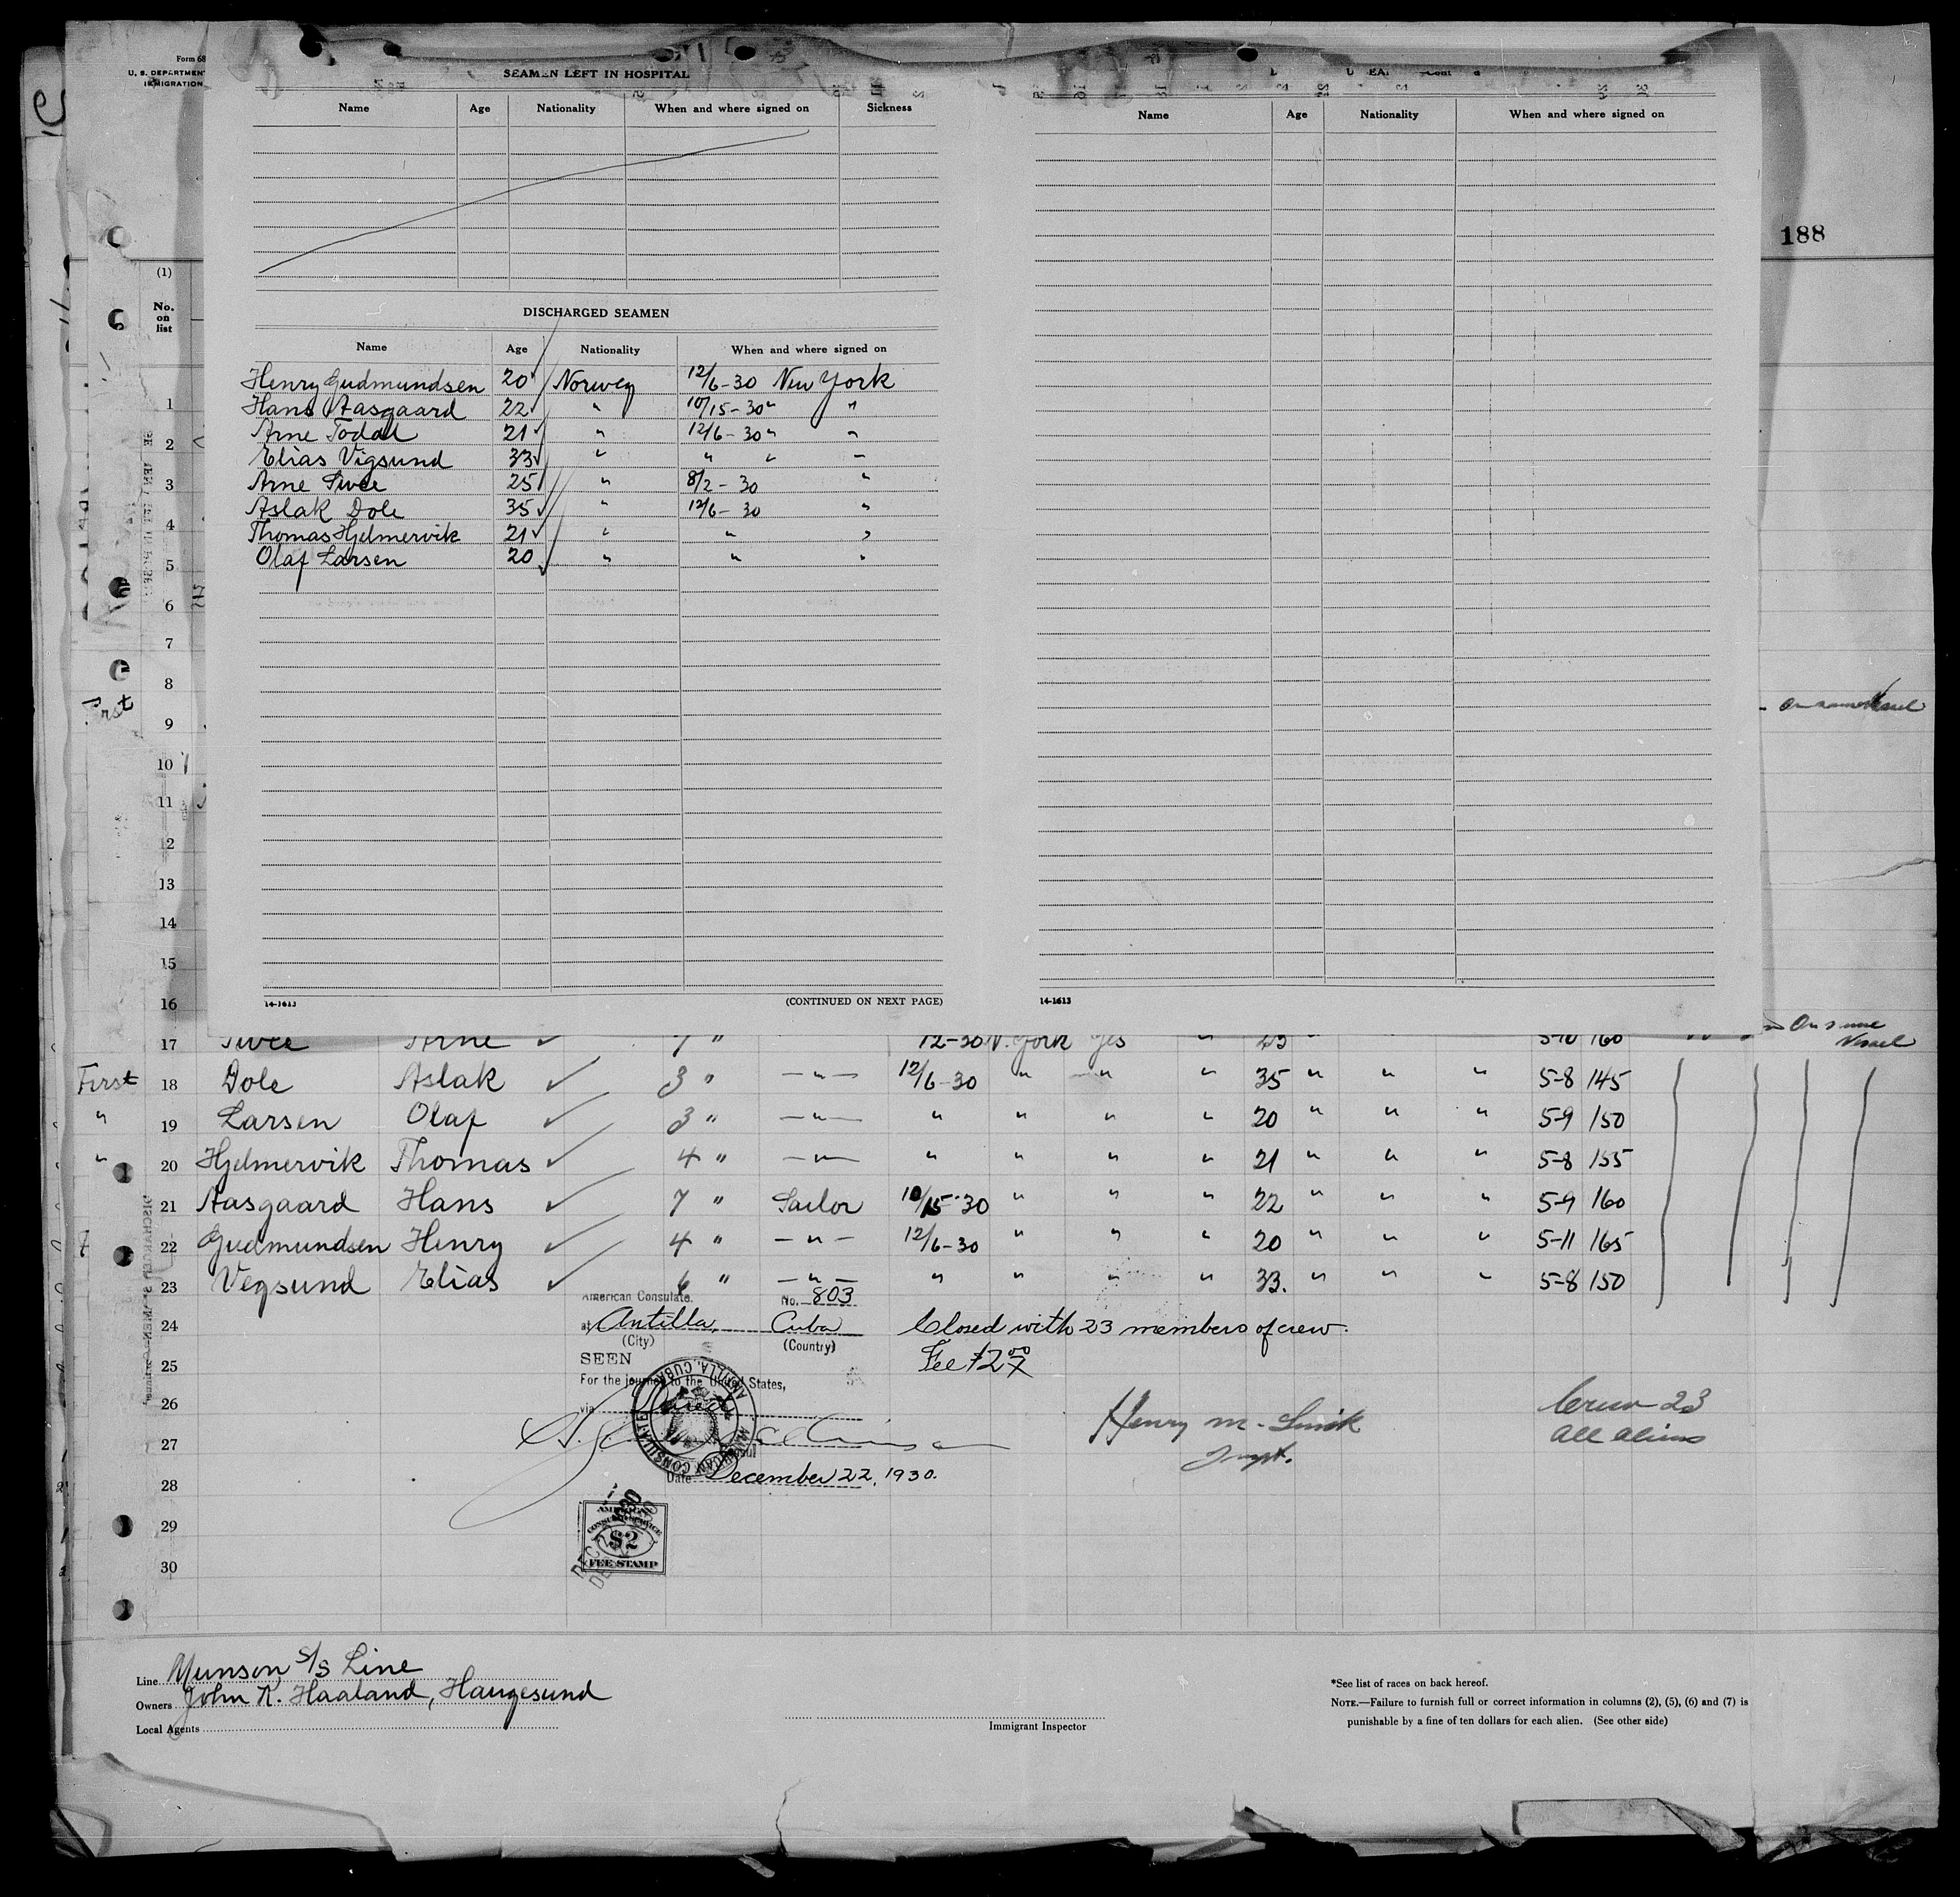 Form 68
U. S. DEPARTMENT
IMMIGRATION
188
SEAMEN LEFT IN HOSPITAL
Name Age Nationality When and where signed on Sickness
DISCHARGED SEAMEN
Name Age Nationality When and where signed on
Henry Gudmundsen 20 Norwey 12/6-30 New York
Hans Aasgaard 22 " 10/15-30 " "
Arne Todal 21 " 12/6-30 " "
Elias Vigsund 33 " " " "
Arne Tvee 25 " 8/2-30 "
Aslak Dole 35 " 12/6-30 "
Thomas Hjelmervik 21 " " "
Olaf Larsen 20 " " "
14-1613 (CONTINUED ON NEXT PAGE)
Name Age Nationality When and where signed on
14-1613
(1)
No. on list
1
2
3
4
5
6
7
8
First 9 On same Vessel
10
11
12
13
14
15
16
17 Tvee Arne 7 " 12-30 N. York Yes " 25 5-10 160 On same Vessel
First 18 Dole Aslak 3 " —"— 12/6-30 " " " 35 " " " 5-8 145
" 19 Larsen Olaf 3 " —"— " " " " 20 " " " 5-9 150
" 20 Hjelmervik Thomas 4 " —"— " " " " 21 " " " 5-8 155
21 Aasgaard Hans 7 " Sailor 10/15-30 " " " 22 " " " 5-9 160
22 Gudmundsen Henry 4 " —"— 12/6-30 " " " 20 " " " 5-11 165
23 Vegsund Elias 6 " —"— " " " " 33. " " " 5-8 150
American Consulate. No. 803
24 at Antilla, Cuba Closed with 23 members of crew.
(City) (Country)
25 SEEN Fee $2.00
For the journey to the United States,
26 via Direct
Crew 23
All aliens
27 Henry M. Smik
Inspt.
Consul
AMERICAN CONSULATE ANTILLA, CUBA
28 Date December 22, 1930.
AMERICAN CONSULAR SERVICE
$2
FEE STAMP
29
30
Line Munson S/S Line
Owners John K. Haaland, Haugesund
Local Agents
Immigrant Inspector
*See list of races on back hereof.
NOTE.—Failure to furnish full or correct information in columns (2), (5), (6) and (7) is
punishable by a fine of ten dollars for each alien. (See other side)